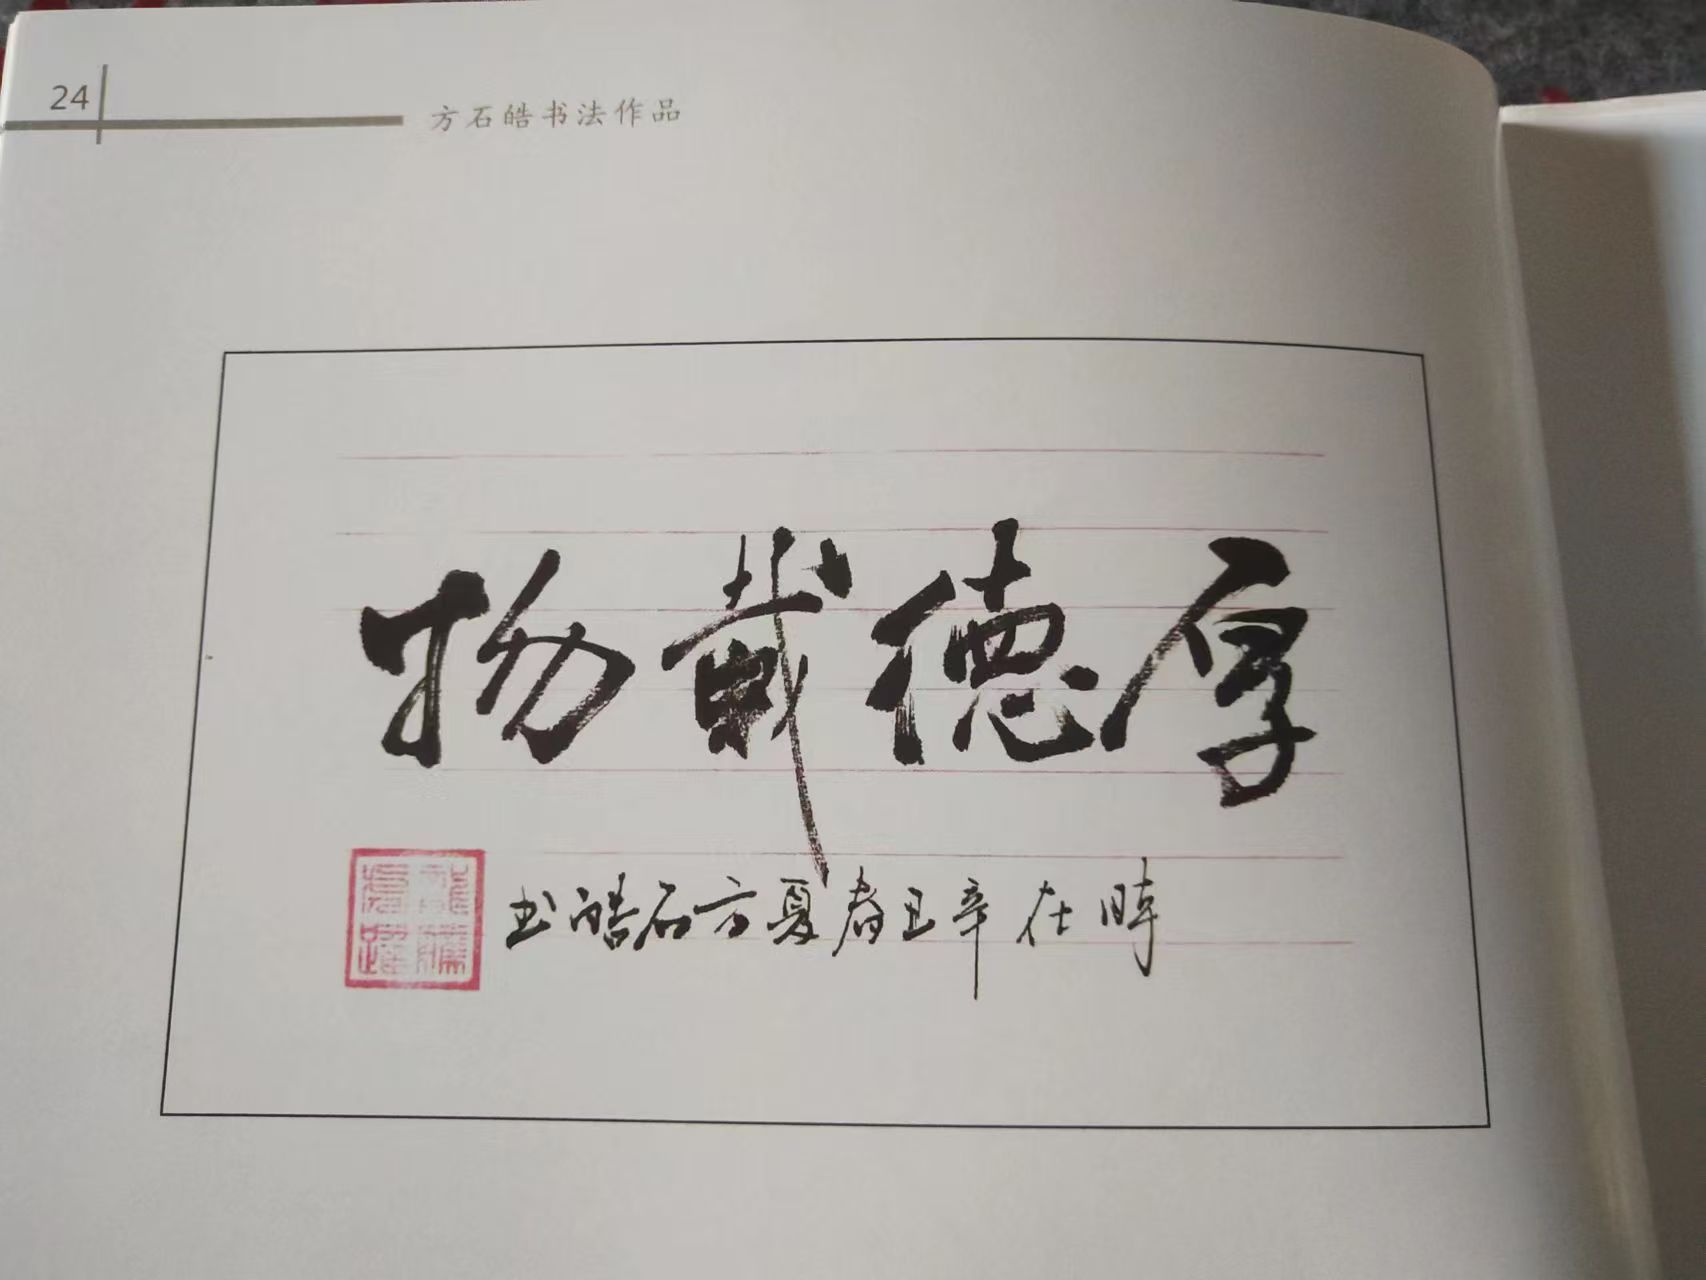 24
方石皓书法作品
厚德载物
时在辛丑春夏方石皓书